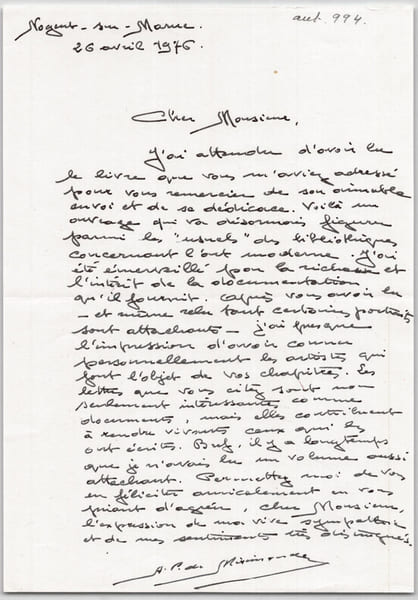 aut. 994.
Nogent-sur-Marne.
26 avril 1976.
Cher Monsieur,
J'ai attendu d'avoir lu
le livre que vous m'aviez adressé
pour vous remercier de son aimable
envoi et de sa dédicace. Voilà un
ouvrage qui va désormais figurer
parmi les "usuels" des bibliothèques
concernant l'art moderne. J'ai
été émerveillé par la richesse et
l'intérêt de la documentation
qu'il fournit. Après vous avoir lu
- et même relu tant certains portraits
sont attachants - j'ai presque
l'impression d'avoir connu
personnellement les artistes qui
font l'objet de vos chapitres. Les
lettres que vous citez sont non
seulement intéressantes comme
documents, mais elles contribuent
à rendre vivants ceux qui les
ont écrites. Bref, il y a longtemps
que je n'avais lu un volume aussi
attachant. Permettez moi de vous
en féliciter amicalement en vous
priant d'agréer, cher Monsieur,
l'expression de ma vive sympathie
et de mes sentiments très distingués.
A. P. de